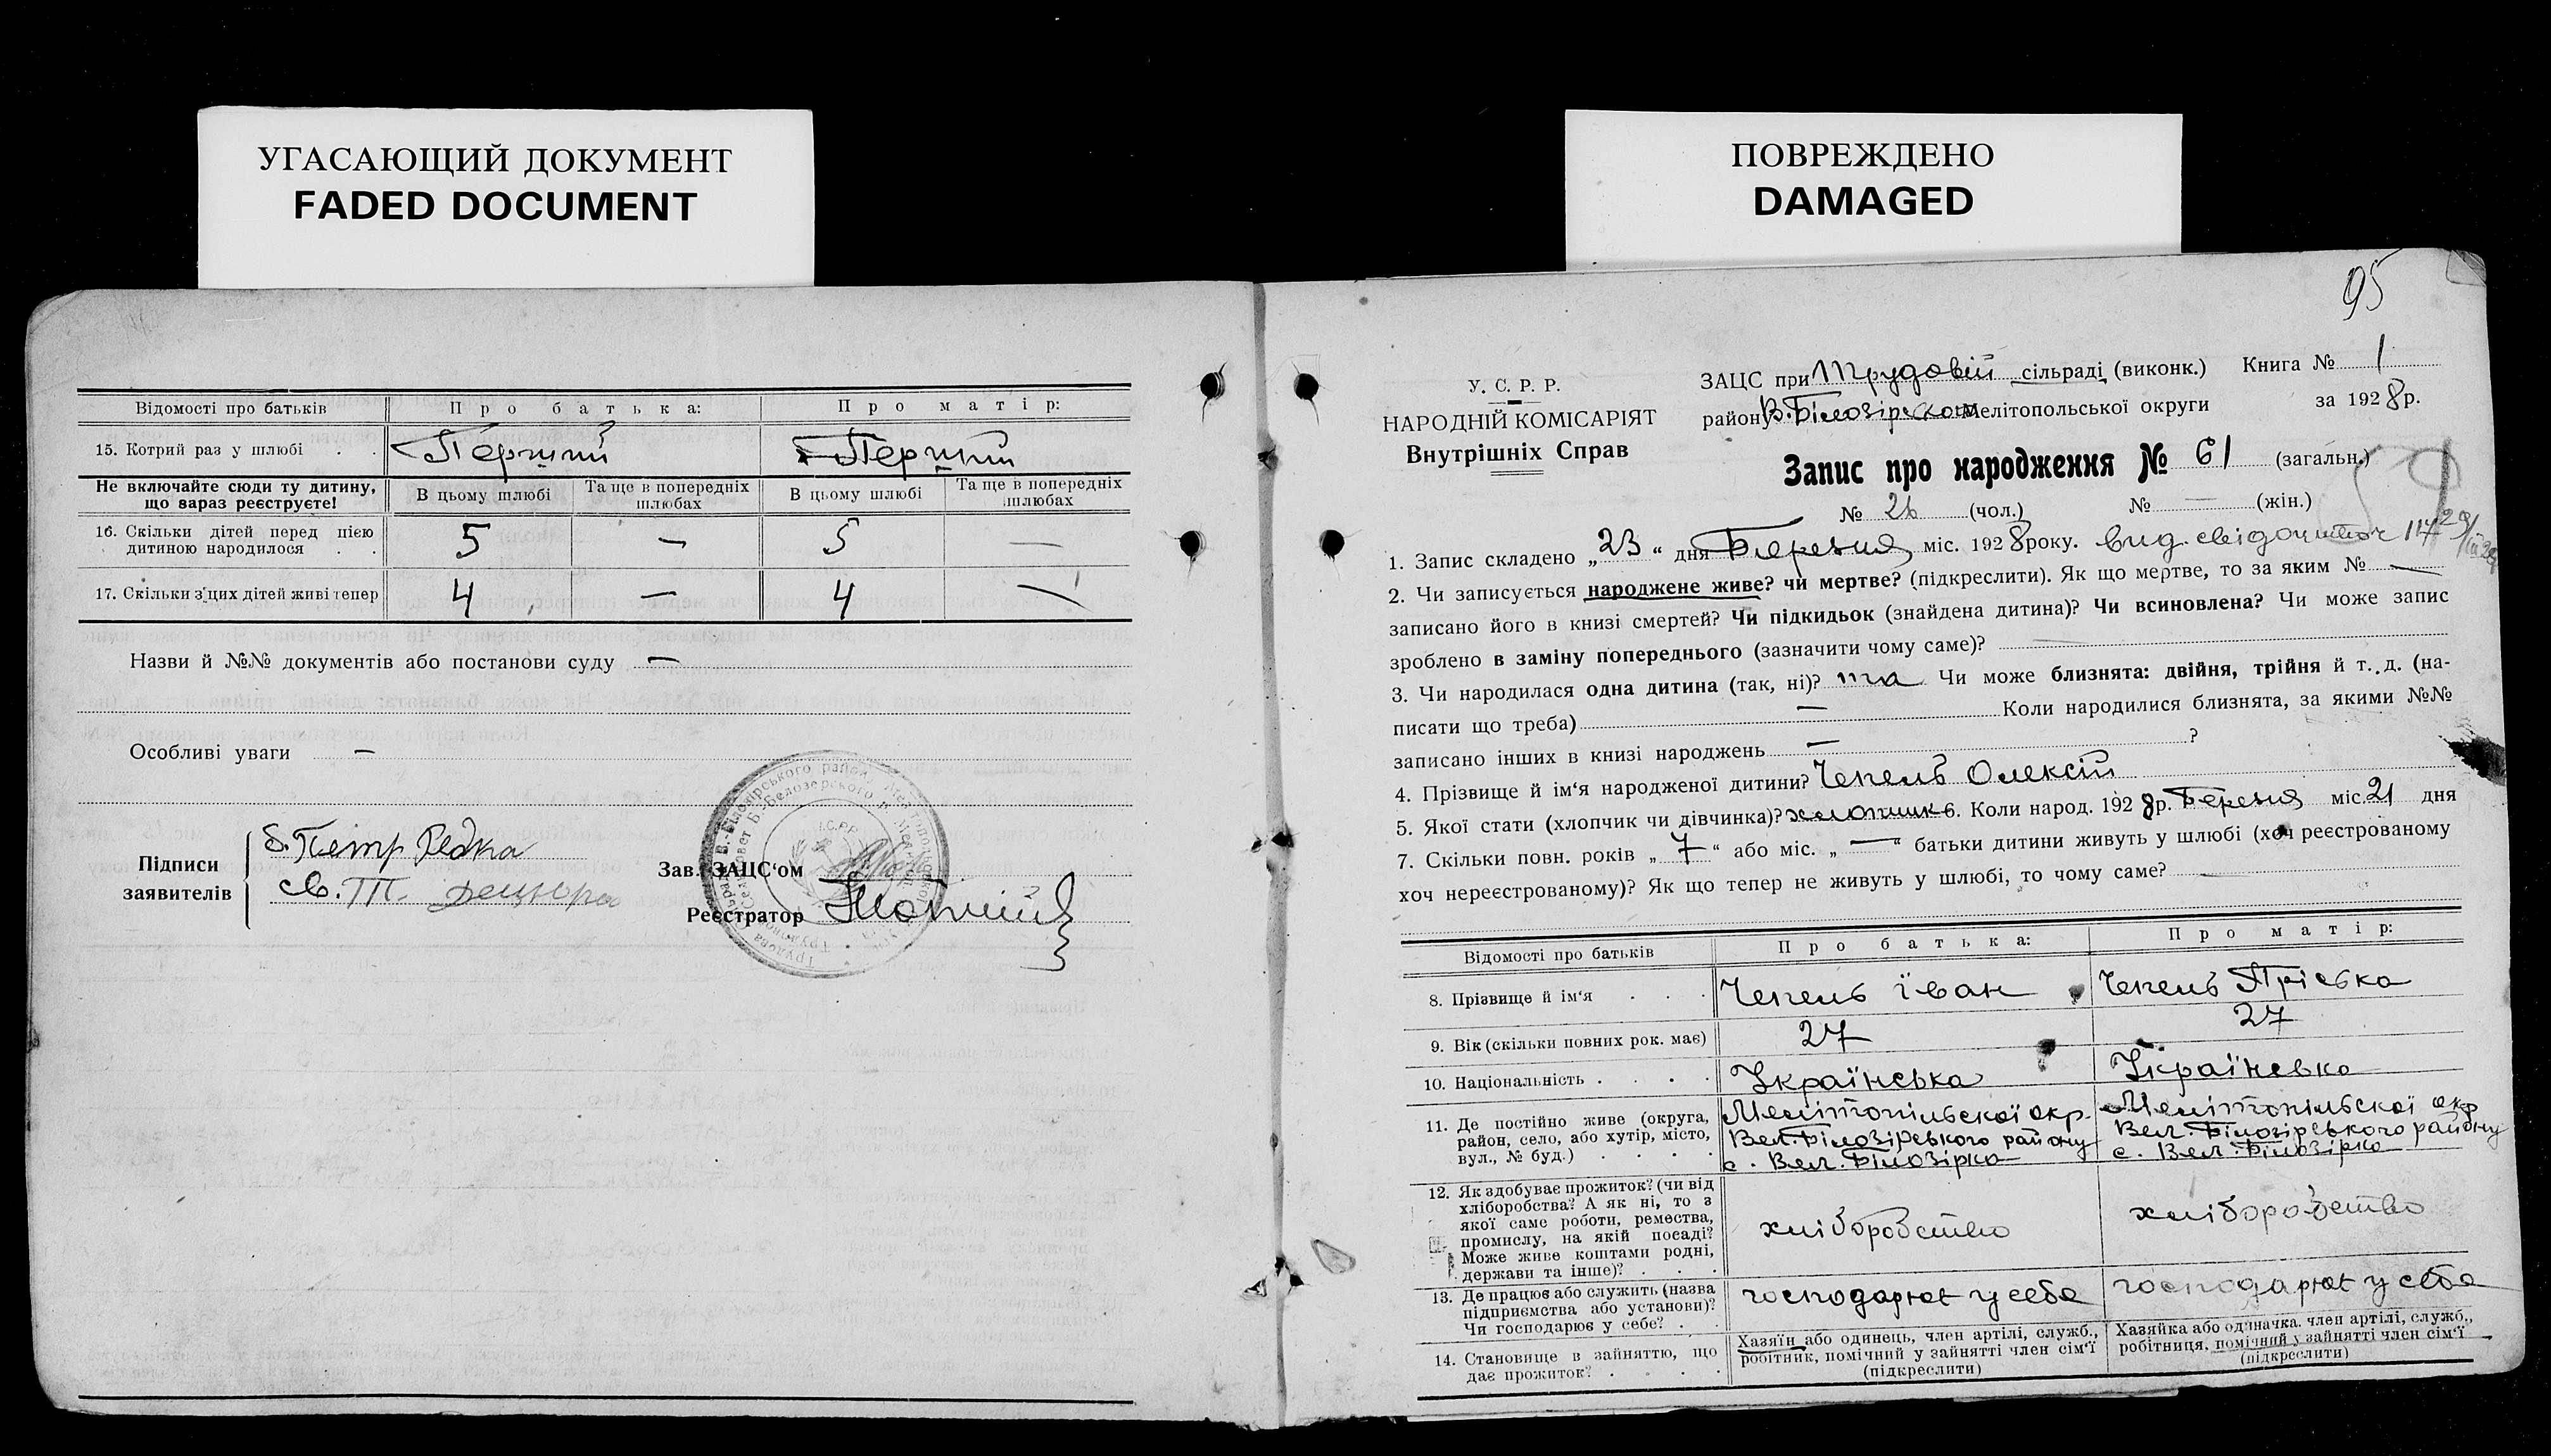 УГАСАЮЩИЙ ДОКУМЕНТ
FADED DOCUMENT
Відомості про батьків Про батька: Про матір:
15. Котрий раз у шлюбі . . Перший Перший
Не включайте сюди ту дитину, що вараз реєструєте! В цьому шлюбі Та ще в попередніх шлюбах В цьому шлюбі Та ще в попередніх шлюбах
16. Скільки дітей перед цією
дитиною народилося . . 5 — 5 —
17. Скільки з цих дітей живі тепер 4 — 4 —
Назви й №№ документів або постанови суду —
Особливі уваги —
Підписи
заявителів
б. Петр Редка
св. Т.
Зав. ЗАЦС‘ом
Реєстратор
ПОВРЕЖДЕНО
DAMAGED
95
У. С. Р. Р.
НАРОДНІЙ КОМІСАРІЯТ
Внутрішніх Справ
ЗАЦС при Трудовій сільраді (виконк.) Книга № 1
району В. Білозірском Мелітопольської округи за 1928 р.
Запис про народження № 61 (загальн.)
№ 26 (чол.) № — (жін.)
1. Запис складено „23“ дня Березня міс. 1928 року. вид. свідоцтво 114
2. Чи записується народжене живе? чи мертве? (підкреслити). Як що мертве, то за яким № —
записано його в книзі смертей? Чи підкидьок (знайдена дитина)? Чи всиновлена? Чи може запис
зроблено в заміну попереднього (зазначити чому саме)? —
3. Чи народилася одна дитина (так, ні)? та Чи може близнята: двійня, трійня й т. д. (на-
писати що треба) — Коли народилися близнята, за якими №№
записано інших в книзі народжень — ?
4. Прізвище й ім‘я народженої дитини? Чепель Олексій
5. Якої стати (хлопчик чи дівчинка)? хлопчик 6. Коли народ. 1928 р. Березня міс. 21 дня
7. Скільки повн. років „7“ або міс. „—“ батьки дитини живуть у шлюбі (хоч реєстрованому
хоч нереєстрованому)? Як що тепер не живуть у шлюбі, то чому саме? —
Відомості про батьків Про батька: Про матір:
8. Прізвище й ім‘я . . . Чепель Їван Чепель Пріська
9. Вік (скільки повних рок. має) 27 27
10. Національність . . . . Українська Українська
11. Де постійно живе (округа,
район, село, або хутір, місто,
вул., № буд.) . . . .
Мелітопільскої окр.
Вел. Білозірського району
с. Вел. Білозірка
Мелітопільскої окр
Вел. Білозірського району
с. Вел. Білозірка
12. Як здобуває прожиток? (чи від
хліборобства? А як ні, то з
якої саме роботи, ремества,
промислу, на якій посаді?
Може живе коштами родні,
держави та інше)? . . .
хліборобство
хліборобство
13. Де працює або служить (назва
підприємства або установи)?
Чи господарює у себе? .
господарює у себе
господарює у себе
14. Становище в зайняттю, що
дає прожиток? . . . .
Хазяїн або одинець, член артілі, служб.,
робітник, помічний у зайнятті член сім‘ї
(підкреслити)
Хазяйка або одиначка, член артілі, служб.,
робітниця, помічний у зайнятті член сім‘ї
(підкреслити)